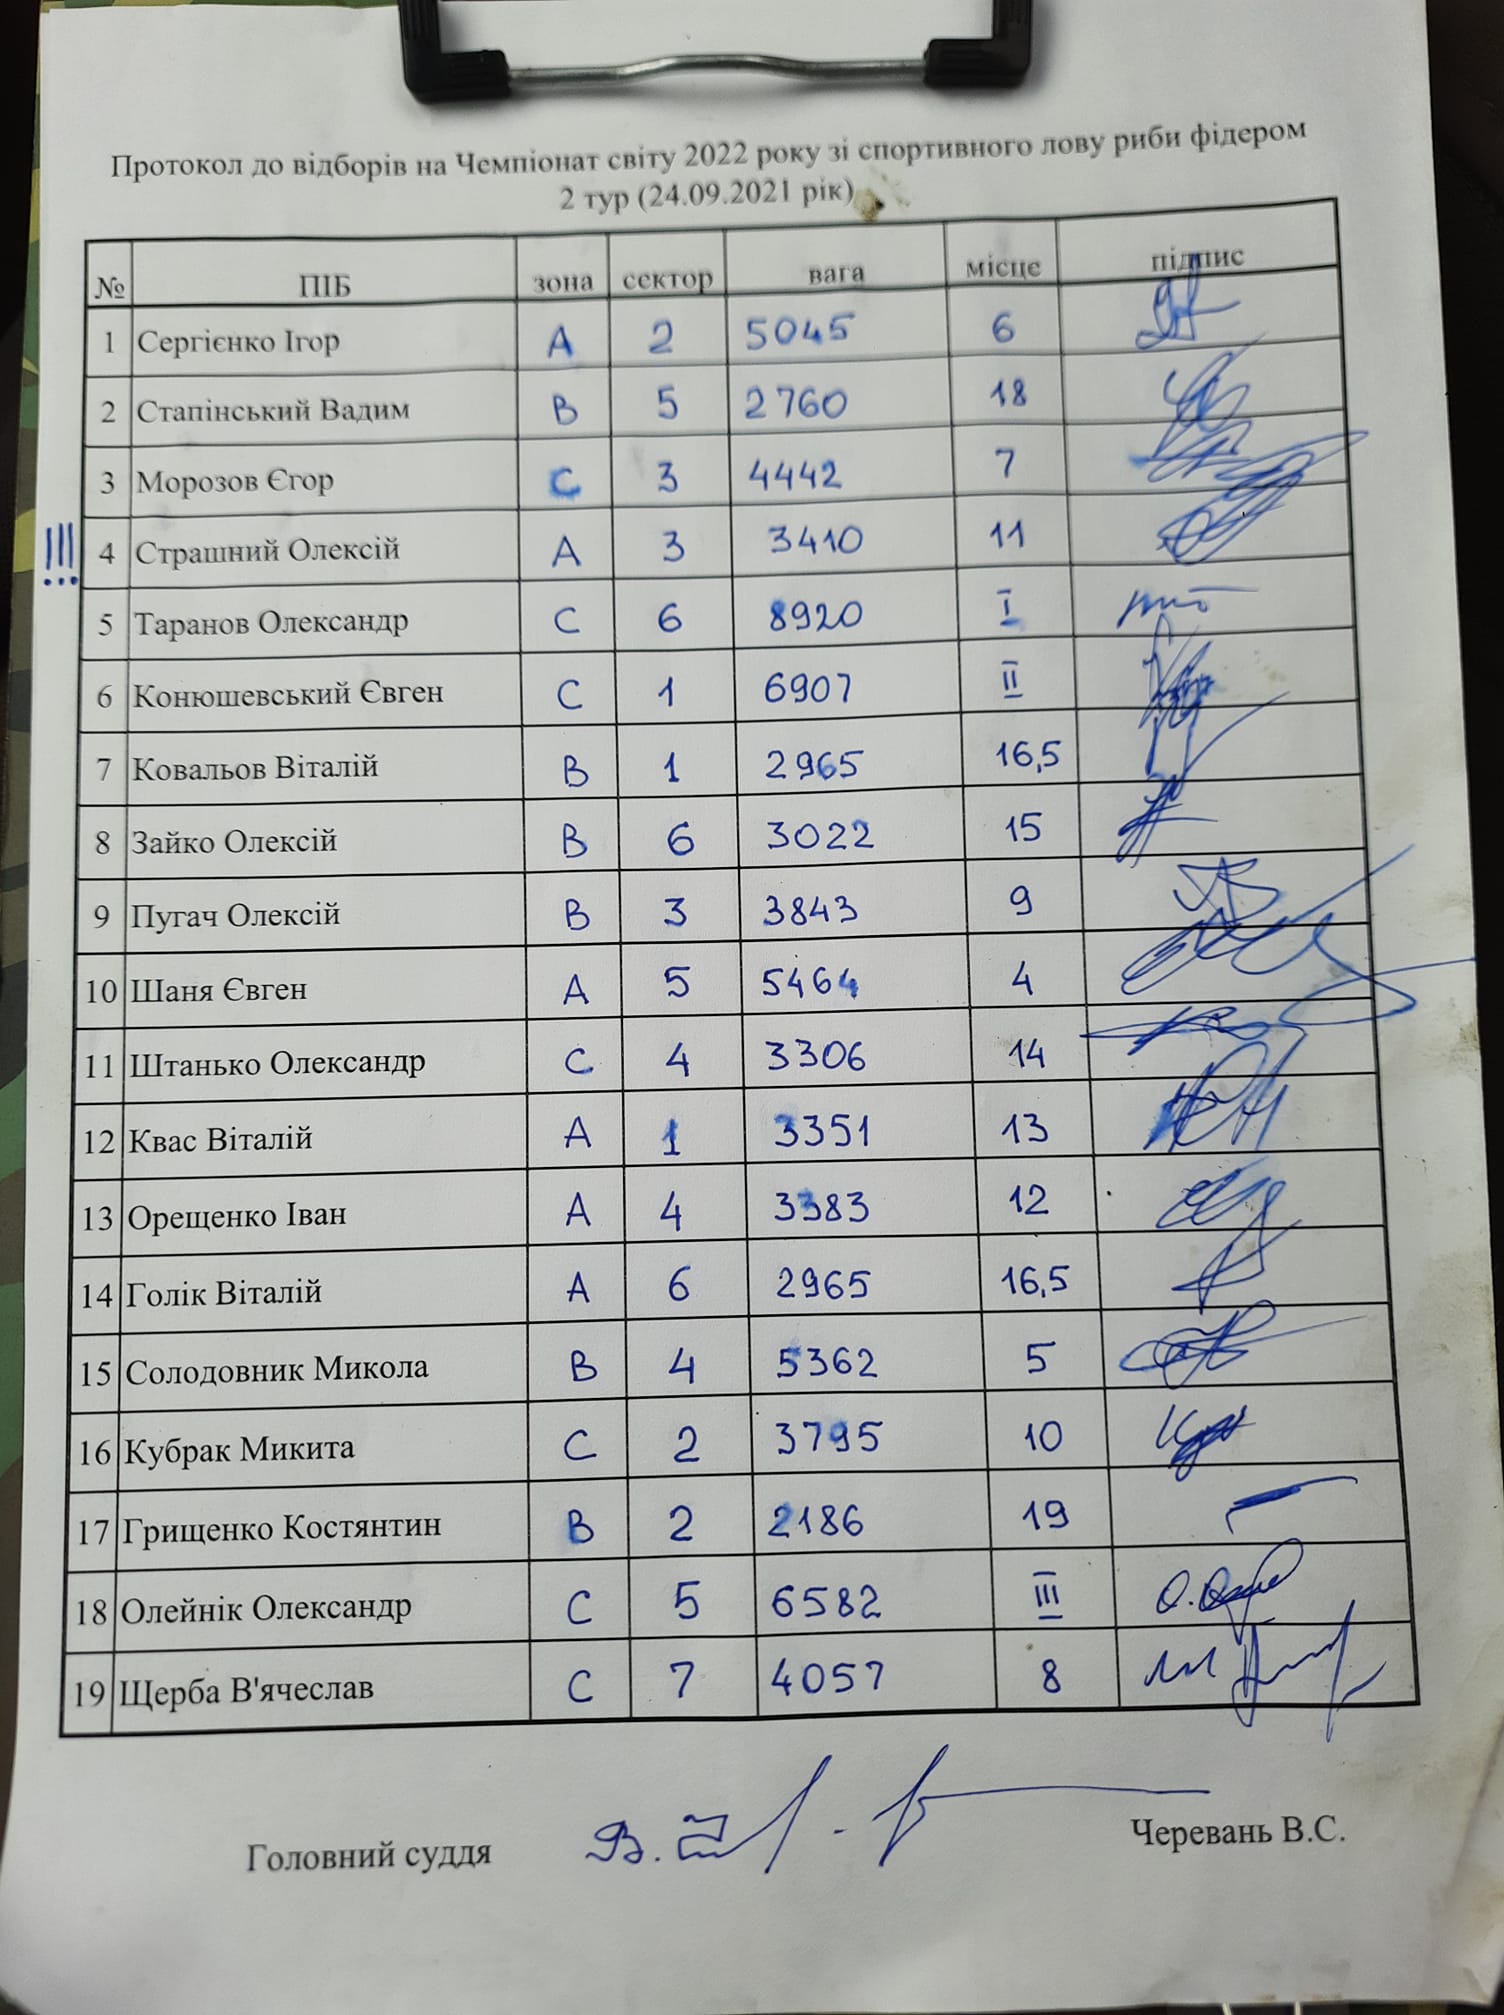 Протокол до відборів на Чемпіонат світу 2022 року зі спортивного лову риби фідером
2 тур (24.09.2021 рік)
№ ПІБ зона сектор вага місце підпис
1 Сергієнко Ігор А 2 5045 6
2 Стапінський Вадим В 5 2760 18
3 Морозов Єгор С 3 4442 7
!!! 4 Страшний Олексій А 3 3410 11
5 Таранов Олександр С 6 8920 I
6 Конюшевський Євген С 1 6907 II
7 Ковальов Віталій В 1 2965 16,5
8 Зайко Олексій В 6 3022 15
9 Пугач Олексій В 3 3843 9
10 Шаня Євген А 5 5464 4
11 Штанько Олександр С 4 3306 14
12 Квас Віталій А 1 3351 13
13 Орещенко Іван А 4 3383 12
14 Голік Віталій А 6 2965 16,5
15 Солодовник Микола В 4 5362 5
16 Кубрак Микита С 2 3795 10
17 Грищенко Костянтин В 2 2186 19
18 Олейнік Олександр С 5 6582 III
19 Щерба В'ячеслав С 7 4057 8
Головний суддя Черевань В.С.